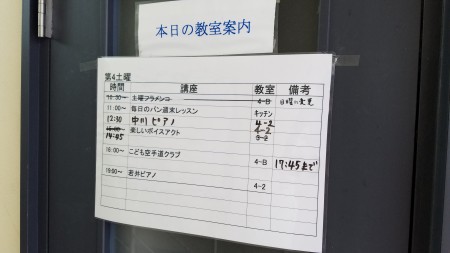 本日の教室案内
第4土曜
時間 講座 教室 備考
10:30〜 土曜フラメンコ 4-B 日曜に変更
11:00〜 毎日のパン週末レッスン キッチン
12:30 中川ピアノ 4-2
14:45 楽しいボイスアクト 4-2
16:00〜 こども空手道クラブ 4-B 17:45まで
19:00〜 若井ピアノ 4-2